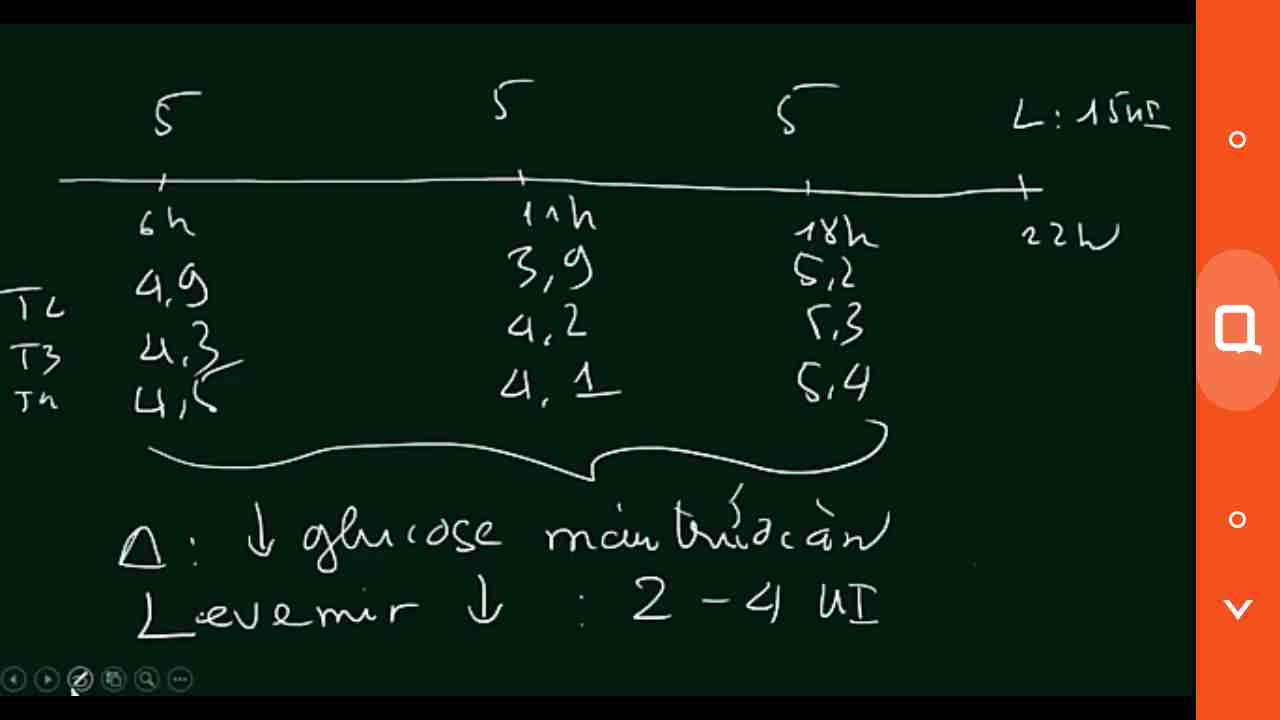 5 5 5 L: 15UI
6h 11h 18h 22h
4,9 3,9 5,2
T2
4,3 4,2 5,3
T3
4,5 4,1 5,4
T4
Δ: ↓ glucose máu trước ăn
Levemir ↓ : 2 - 4 UI